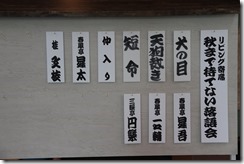 リビング寄席
秋まで待てない落語会
犬の目
春風亭 昇吾
天狗裁き
春風亭 一之輔
短命
三遊亭 円楽
仲入り
春風亭 昇太
桂 文枝